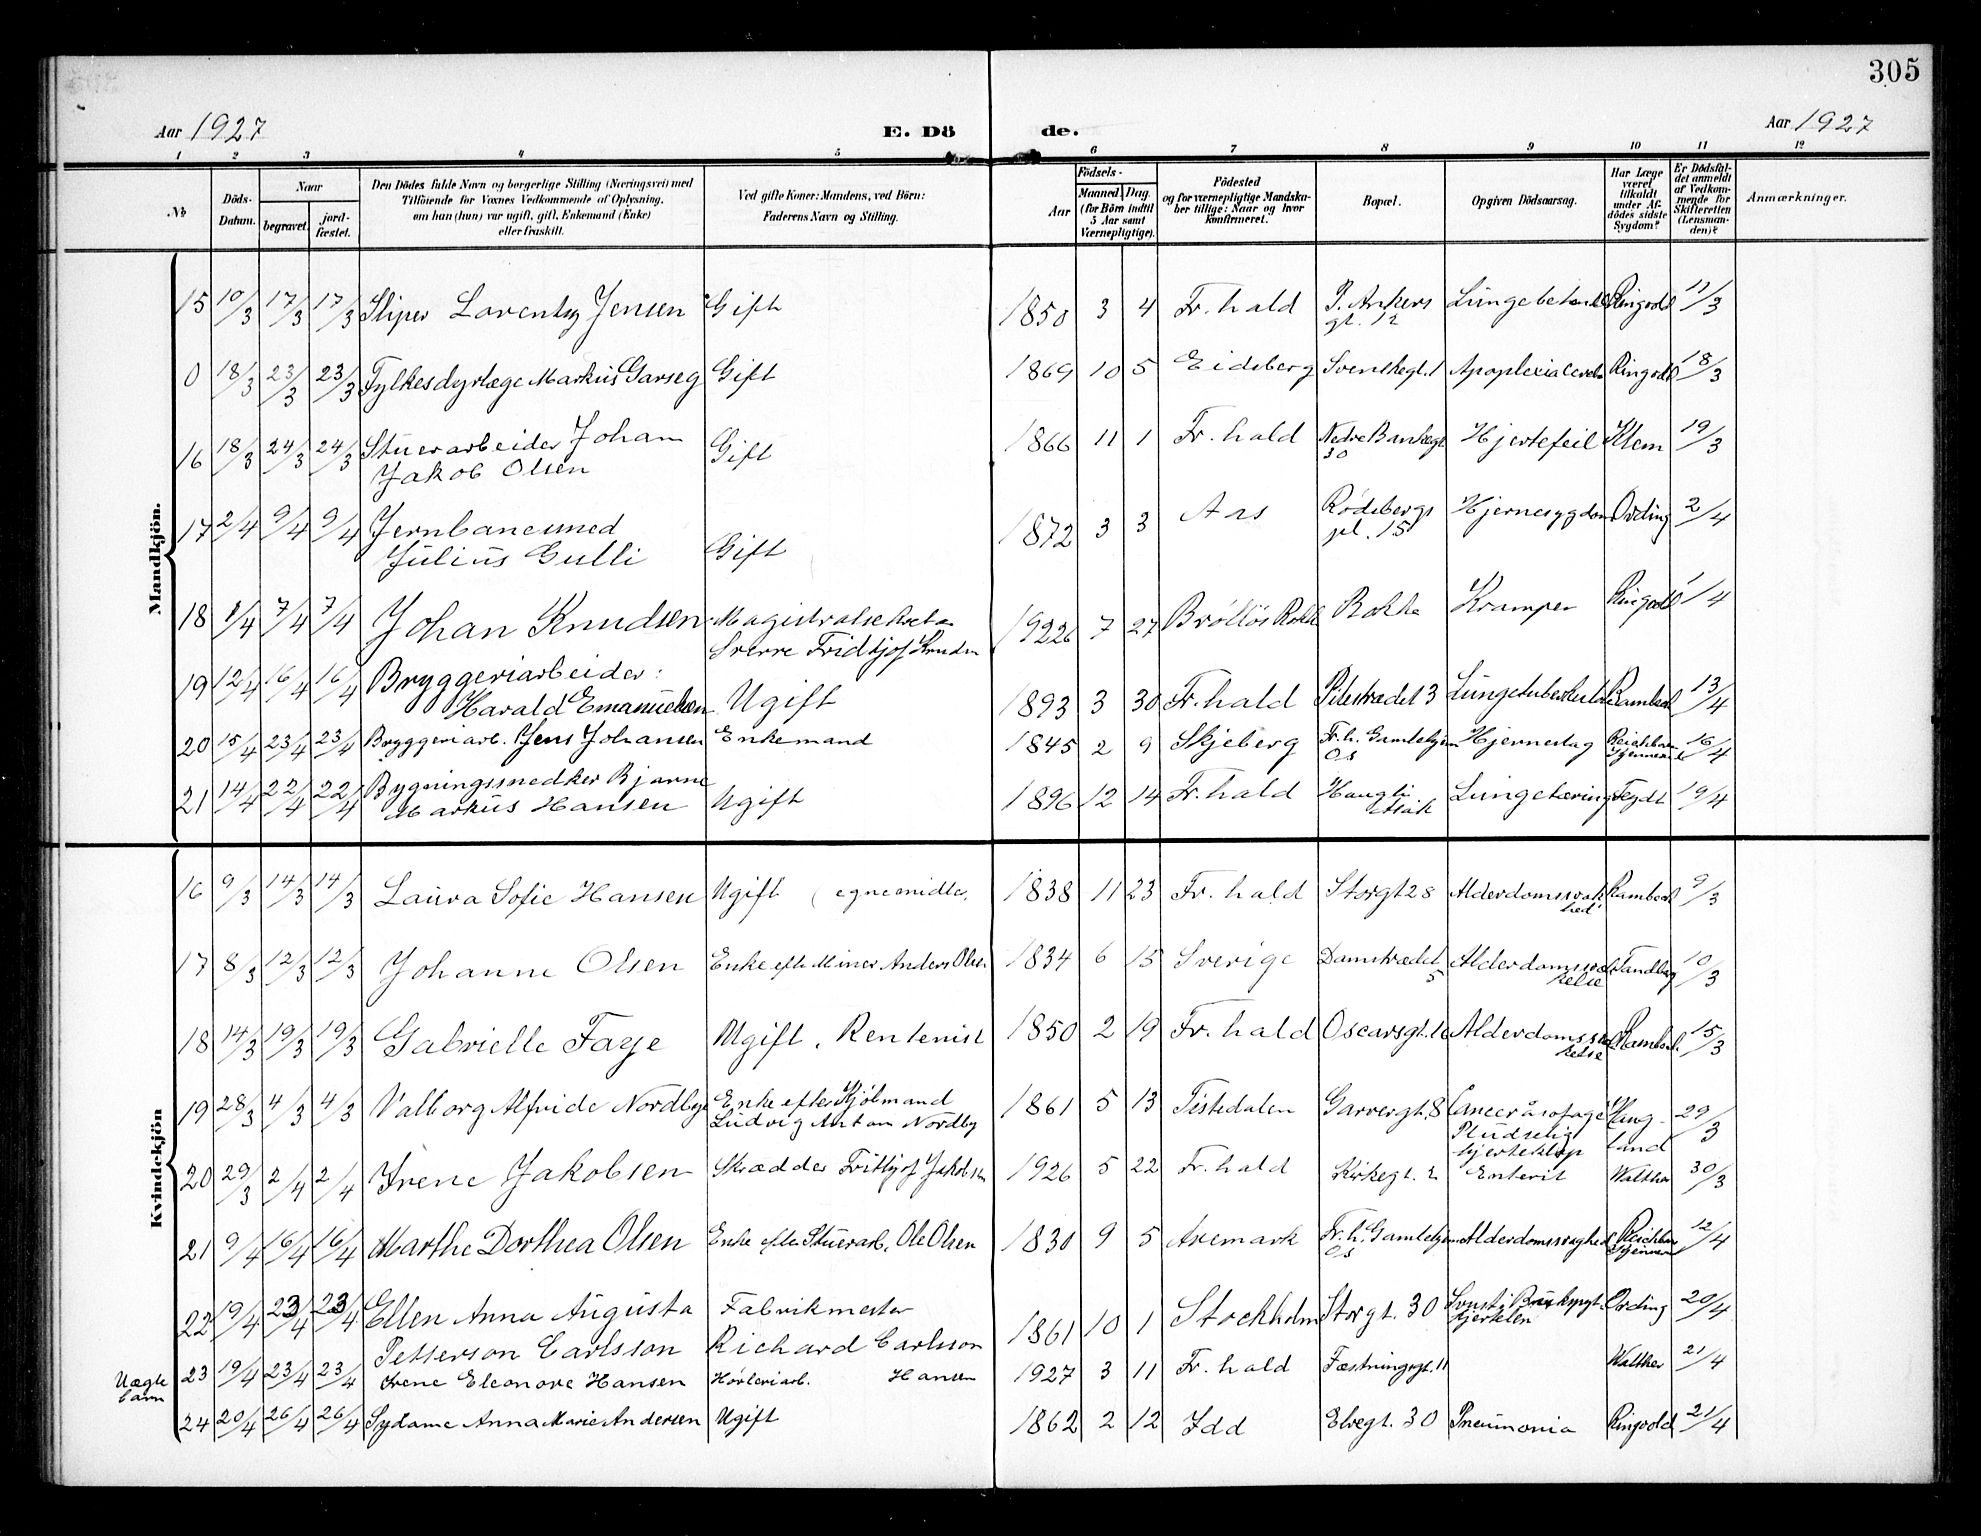 305
Aar 1927
E. Dö
de.
Aar 1927
1 2 3 4 5 6 7 8 9 10 11 12
No
Döds-Datum.
Naar
begravet.
jord-fæstet.
Den Dödes fulde Navn og borgerlige Stilling (Næringsvei) med
Tilföiende for Voxnes Vedkommende af Oplysning,
om han (hun) var ugift, gift, Enkemand (Enke)
eller fraskilt.
Ved gifte Koner: Mandens, ved Börn:
Faderens Navn og Stilling.
Födsels-
Aar
Maaned. Dag.
(for Börn indtil
5 Aar samt
Værnepligtige).
Födested
og for værnepligtige Mandska-
ber tillige: Naar og hvor
konfirmeret.
Bopæl.
Opgiven Dödsaarsag.
Har Læge
været
tilkaldt
under Af-
dödes sidste
Sygdom?
Er Dödsfal-
det anmeldt
af Vedkom-
mende for
Skifteretten
(Lensman-
den)?
Anmærkninger.
Mandkjön.
15 10/3 17/3 17/3 Sliper Lorentz Jensen Gift 1850 3 4 Fr.hald P. Ankers gt. 12 Ringvold 11/3
0 18/3 23/3 23/3 Fylkesdyrlæge Markus Garseg Gift 1869 10 5 Eidsberg Svenskegt. 1 Apoplexia cerebr Ringvold 18/3
16 18/3 24/3 24/3 Stuerarbeider Johan
Jakob Olsen Gift 1866 11 1 Fr.hald Nedre Bankegt. 30 Hjertefeil Klem 19/3
17 2/4 9/4 9/4 Jernbanemed
Julius Gulli Gift 1872 3 3 Aas Rødsbergs pl. 15 Hjernesygdom Ording 2/4
18 1/4 7/4 7/4 Johan Knudsen Magistratsekretær
Sverre Fridtjof Knudsen 1926 7 27 Rokke Kramper Ringvold 1/4
19 12/4 16/4 16/4 Bryggeriarbeider:
Harald Emanuelsen Ugift 1893 3 30 Fr.hald Pilestrædet 3 Lungetuberkulose Rambech 13/4
20 15/4 23/4 23/4 Bryggeriarb. Jens Johansen Enkemand 1845 2 9 Skjeberg Fr.h. Gamlehjem Os Hjerneslag 16/4
21 14/4 22/4 22/4 Bygningssnedker Bjarne
Markus Hansen Ugift 1896 12 14 Fr.hald Haugli Lungetæring Feydt 19/4
Kvindekjön
16 9/3 14/3 14/3 Laura Sofie Hansen Ugift (egne midler. 1838 11 23 Fr.hald Storgt 28 Alderdomssvakhed Rambech 9/3
17 8/3 12/3 12/3 Johanne Olsen Enke efter Miner Anders Olsen 1834 6 15 Sverige Damstrædet 5 Alderdomssvækkelse Tandberg 10/3
18 14/3 19/3 19/3 Gabrielle Faye Ugift. Rentenist 1850 2 19 Fr.hald Oscarsgt. 16 Alderdomssvækkelse Rambech. 15/3
19 28/3 4/3 4/3 Valborg Alfride Nordbye Enke efter Kjøbmand
Ludvig Anton Nordby 1861 5 13 Tistedalen Garvergt. 8 Cancer øsofagi
Pludselig
hjerteklap Haugland 29/3
20 29/3 2/4 2/4 Irene Jakobsen Skrædder Fritjof Jakobsen 1926 5 22 Fr.hald Kirkegt. 2 Enterit Walther 30/3
21 9/4 16/4 16/4 Marthe Dorthea Olsen Enke efter Stuerarb. Ole Olsen 1830 9 5 Aremark Fr.h. Gamlehjem Os Alderdomssvaghed 12/4
22 19/4 23/4 23/4 Ellen Anna Augusta
Petterson Carlsson Fabrikmester
Richard Carlsson 1861 10 1 Stockholm Storgt. 30 Ording 20/4
Uægte
barn 23 19/4 23/4 23/4 Irene Eleonore Hansen Hansen 1927 3 11 Fr.hald Fæstningsgt. 11 Walther 21/4
24 20/4 26/4 26/4 Sydame Anna Marie Andersen Ugift 1862 2 12 Idd Elvegt. 30 Pneumonia Ringvold 21/4